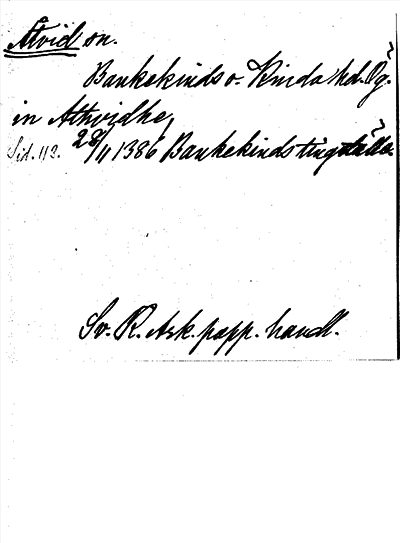 Atvid sn.
Bankekinds o. Kinda hd. Ög.
in Athvidhe,
Sid. 113. 28/11 1386 Bankekinds tingställe
Sv. R. Ark. papp. handl.